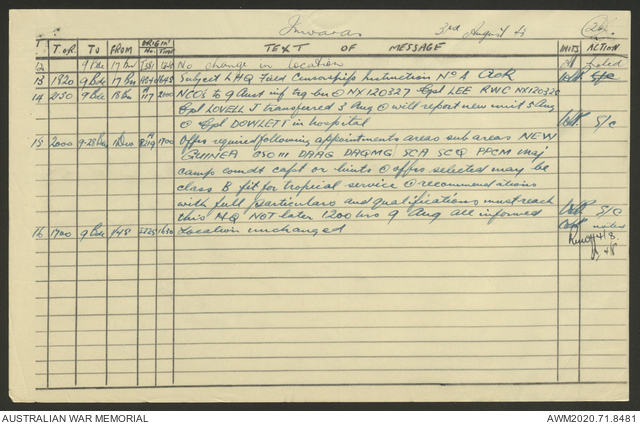 Inwards 3rd August
T. T.O.R. TO FROM ORIG NO. TIME TEXT OF MESSAGE INITS ACTION
12 9 Bde 17 Bn No change in location noted
13 1920 9 Bde 17 Bn Subject to HQ Field Censorship Instruction No 4 S/C
14 2130 9 Bde 2000 NCOs to 9 Aust inf trg bn @ NX120327 Cpl LEE RWC NX120320
Cpl LOVELL J transferred 3 Aug @ will report new unit 5 Aug
@ Cpl DOWLETT in hospital S/C
15 2000 1700 Offrs required following appointments areas sub areas NEW
GUINEA GSO III DAAG DAQMG SCA SCQ maj
camp comdt capt or lieuts @ offrs selected may be
class B fit for tropical service @ recommendations
with full particulars and qualifications must reach
this HQ NOT later 1200 hrs 9 Aug all informed S/C
16 1700 9 Bde 1630 Location unchanged noted
4/8
AUSTRALIAN WAR MEMORIAL AWM2020.71.8481